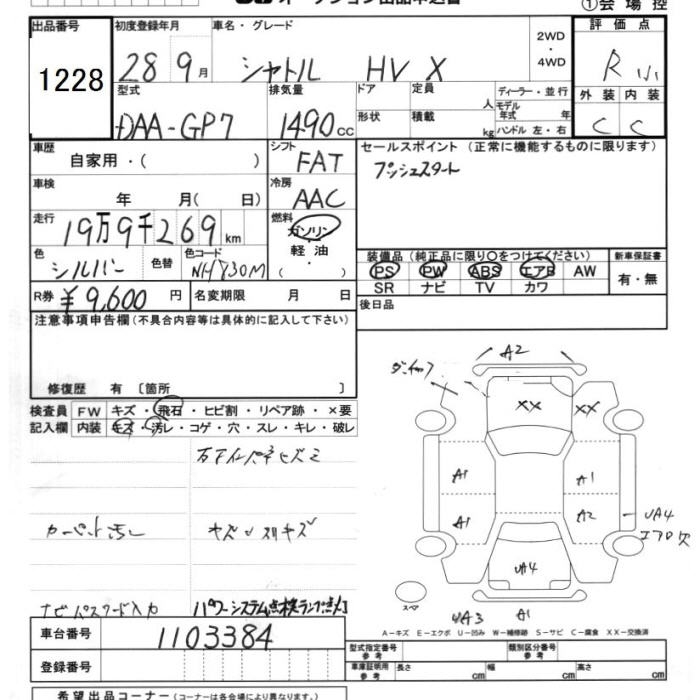 オークション出品申込書
①会場控
出品番号 1228
初度登録年月 28 9月
車名・グレード シャトル HV X
2WD・4WD
評価点 R小
外装 C 内装 C
型式 DAA-GP7
排気量 1490cc
ドア 形状
定員 人
積載 kg
ディーラー・並行
モデル年式 年
ハンドル 左・右
車歴 自家用・( )
シフト FAT
セールスポイント (正常に機能するものに限ります)
プッシュスタート
車検 年 月( 日)
冷房 AAC
走行 19万9千269km
燃料 ガソリン・軽油・( )
色 シルバー 色替 色コード NH830M
装備品 (純正品に限り○をつけてください)
新車保証書
PS PW ABS エアB AW
SR ナビ TV カワ
有・無
R券 ¥9,600円
名変期限 月 日
後日品
注意事項申告欄 (不具合内容等は具体的に記入して下さい)
修復歴 有 [箇所 ]
検査員記入欄
FW キズ・飛石・ヒビ割・リペア跡・×要
内装 キズ・汚レ・コゲ・穴・スレ・キレ・破レ
カーペット汚レ
ナビパスワード入力
パワーシステム点検ランプ点灯
A2
XX XX
A1 A1
A1 A2
UA4
エアロ欠
UA4
スペア
UA3 A1
A-キズ E-エクボ U-凹み W-補修跡 S-サビ C-腐食 XX-交換済
車台番号 1103384
登録番号
型式指定番号 参考
類別区分番号 参考
車庫証明用 参考 長さ cm 幅 cm 高さ cm
希望出品コーナー (コーナーは各会場により異なります。)